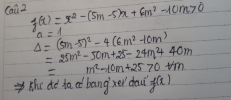 Câu 2
f(x) = x² - (5m-5)x + 6m² - 10m > 0
a = 1
Δ = (5m-5)² - 4(6m² - 10m)
= 25m² - 50m + 25 - 24m² + 40m
= m² - 10m + 25 > 0 ∀m
⇒ Khi đó ta có bảng xét dấu f(x)